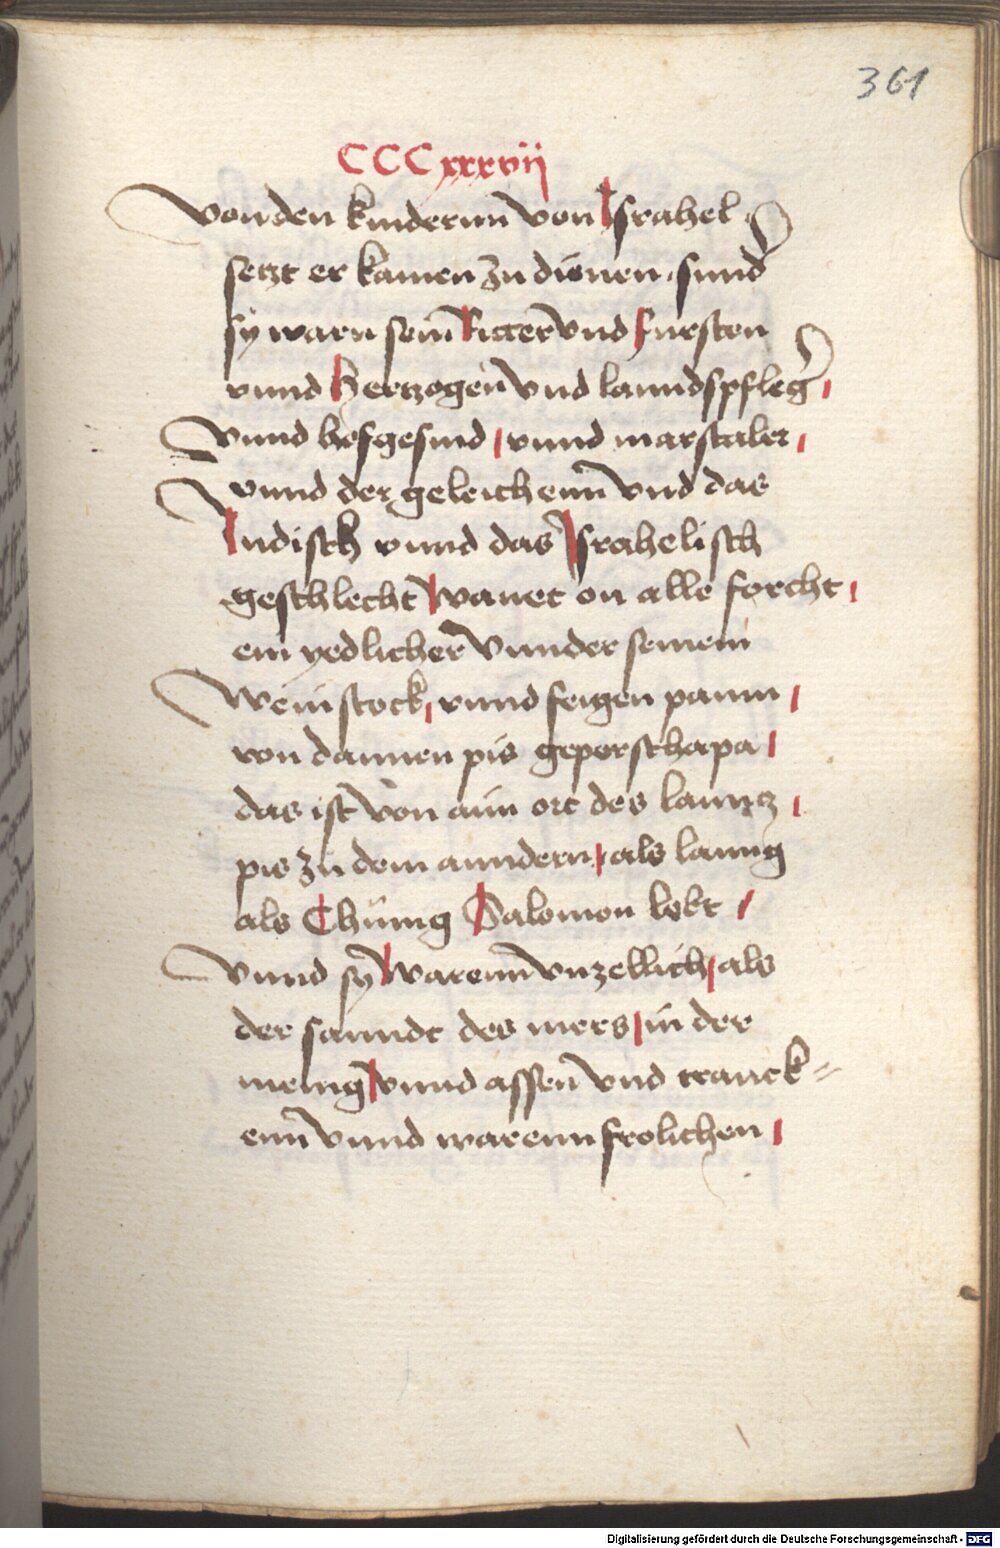 361
CCCxxxvij
Von den kindernn von Israhel
setzt er kamen zu dienen sunder
sy warn sein Ritter vnd fursten
vnnd Hertzogen vnd lanndspfleger
Vnnd hofgesind vnnd marstaler
vnnd der geleichenn vnd das
Iudisch vnnd das Israhelisch
geschlecht wanet on alle forcht
ein yedlicher vnnder seinem
Weinstock vnnd feigen paum
von dannen pis geperschapa
das ist von aim ort des lanntz
pis zu dem anndern als lanng
als Chünig Salomon lebt
Vnnd sy warenn vnzellich als
der sanndt des mers in der
menig vnnd assen vnd tranck=
enn vnnd warenn frolichen
Digitalisierung gefördert durch die Deutsche Forschungsgemeinschaft - DFG